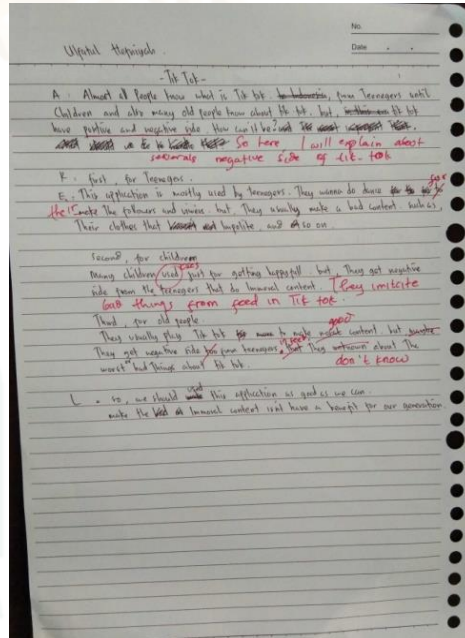 No.
Date
- Tik Tok -
A . Almost all People know what is Tik tok . from Teenegers until
Children and also many old people know about tik tok. but, tik tok
have positive and negative side. How can it be?
So here I will explain about
negative side of tik-tok
first, for Teenegers.
E . This application is mostly used by teenegers. They wanna do dance for
their make The folowers and but, They usually make a bad content. such as,
Their clothes that impolite, and so on.
Second, for children
Many children used just for getting happy full. but, They get negative
side from the teenegers that do Immoral content. They imitate
bad things from feed in Tik tok.
Third, for old people. good
They usually play Tik tok to make content. but
They get negative side from teenegers, that They about The
worst bad Things about tik tok. don't know
L . so, we should used this application as good as we can.
make the Immoral content isn't have a benefit for our generation